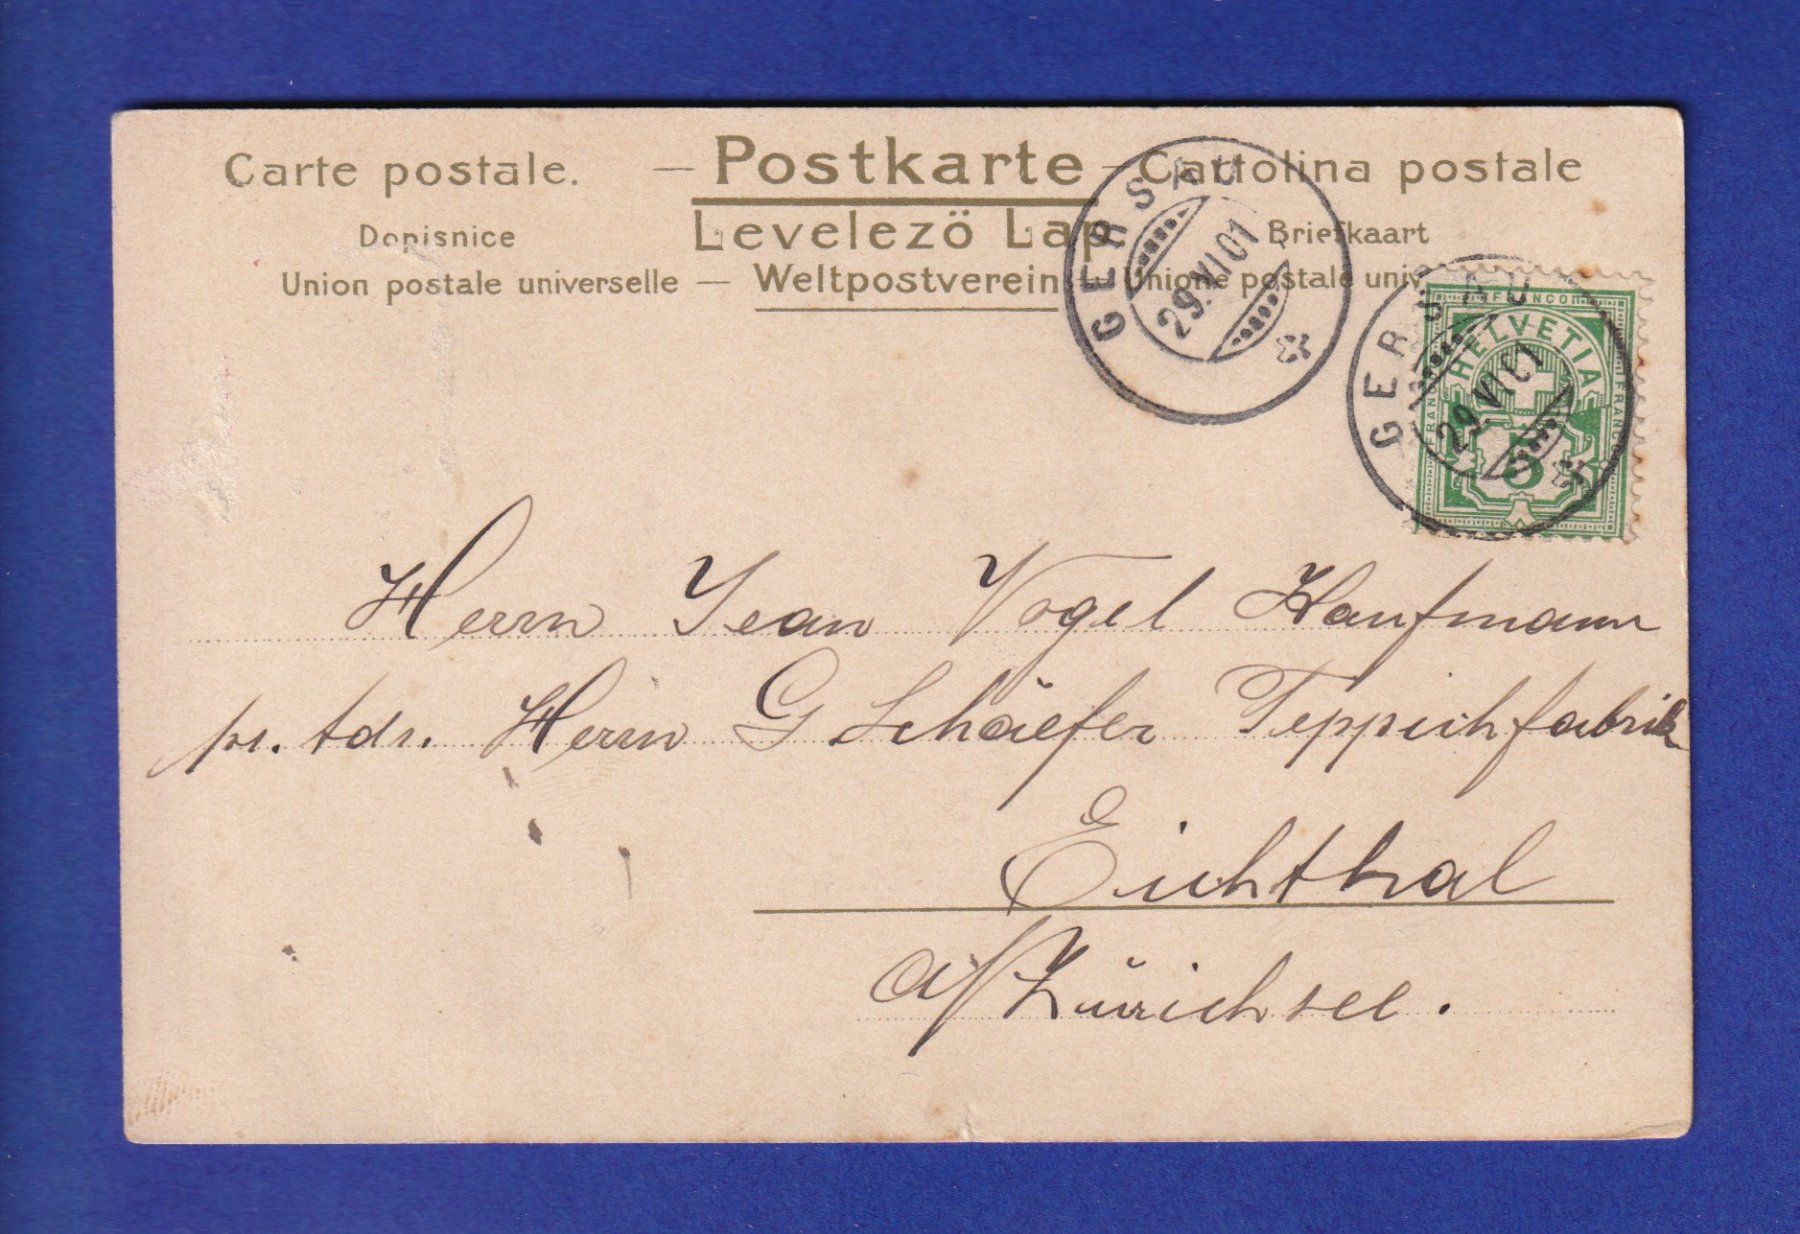 Carte postale. — Postkarte — Cattolina postale
Dopisnice Levelezö Lap. Briefkaart
Union postale universelle — Weltpostverein — Unione postale univ
GERSAU
29.VI.01
GERSAU
29.VI.01
FRANCO
FRANCO
FRANCO
HELVETIA
5
Herrn Jean Vogel Kaufmann
pr. Adr. Herrn G Schäefer Teppichfabrik
Eichthal
a/Zürichsee.